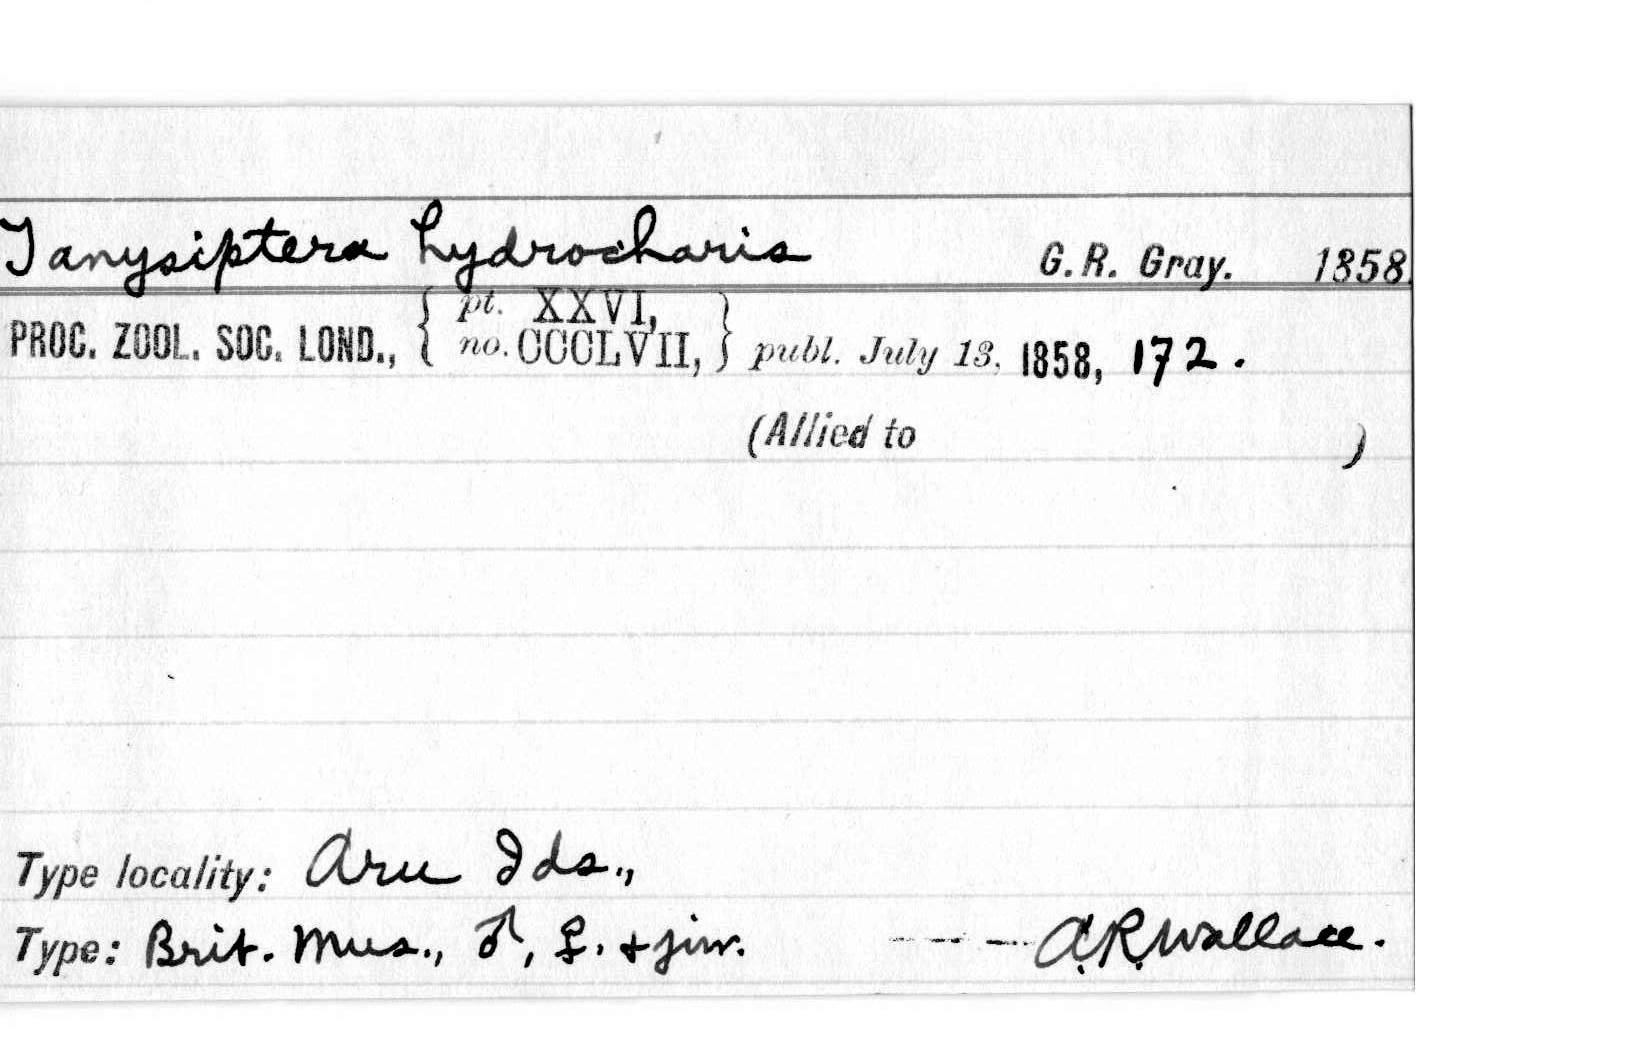 Tanysiptera hydrocharis G.R. Gray. 1858.
PROC. ZOOL. SOC. LOND., { pt. XXVI, no. CCCLVII, } publ. July 13, 1858, 172.
(Allied to )
Type locality: Aru Ids.,
Type: Brit. Mus., ♂, ♀. + juv. ---- A.R. Wallace.